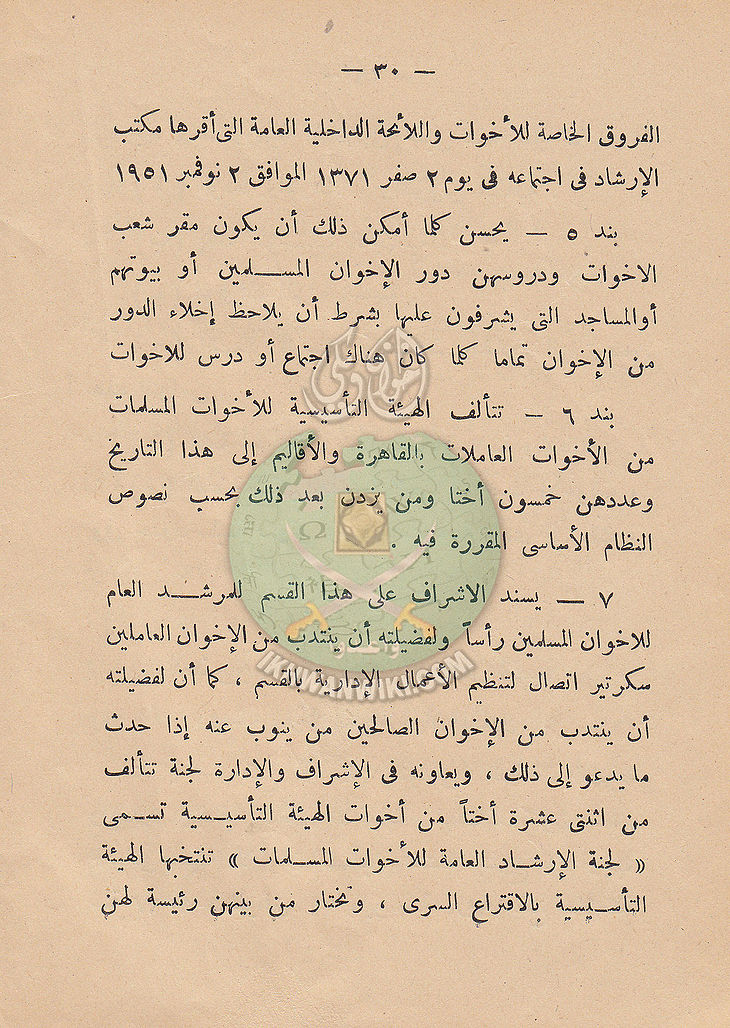 — ٣٠ —
الفروق الخاصة للأخوات واللائحة الداخلية العامة التى أقرها مكتب
الإرشاد فى اجتماعه فى يوم ٢ صفر ١٣٧١ الموافق ٢ نوفمبر ١٩٥١
بند ٥ — يحسن كلما أمكن ذلك أن يكون مقر شعب
الاخوات ودروسهن دور الإخوان المسلمين أو بيوتهم
أوالمساجد التى يشرفون عليها بشرط أن يلاحظ إخلاء الدور
من الإخوان تماما كلما كان هناك اجتماع أو درس للاخوات
بند ٦ — تتألف الهيئة التأسيسية للأخوات المسلمات
من الأخوات العاملات بالقاهرة والأقاليم إلى هذا التاريخ
وعددهن خمسون أختا ومن يزدن بعد ذلك بحسب نصوص
النظام الأساسى المقررة فيه .
٧ — يسند الاشراف على هذا القسم للمرشد العام
للاخوان المسلمين رأساً ولفضيلته أن ينتدب من الإخوان العاملين
سكرتير اتصال لتنظيم الأعمال الإدارية بالقسم ، كما أن لفضيلته
أن ينتدب من الإخوان الصالحين من ينوب عنه إذا حدث
ما يدعو إلى ذلك ، ويعاونه فى الإشراف والإدارة لجنة تتألف
من اثنتى عشرة أختاً من أخوات الهيئة التأسيسية تسمى
« لجنة الإرشاد العامة للأخوات المسلمات » تنتخبها الهيئة
التأسيسية بالاقتراع السرى ، وتختار من بينهن رئيسة لهن
IKHWANWIKI.COM